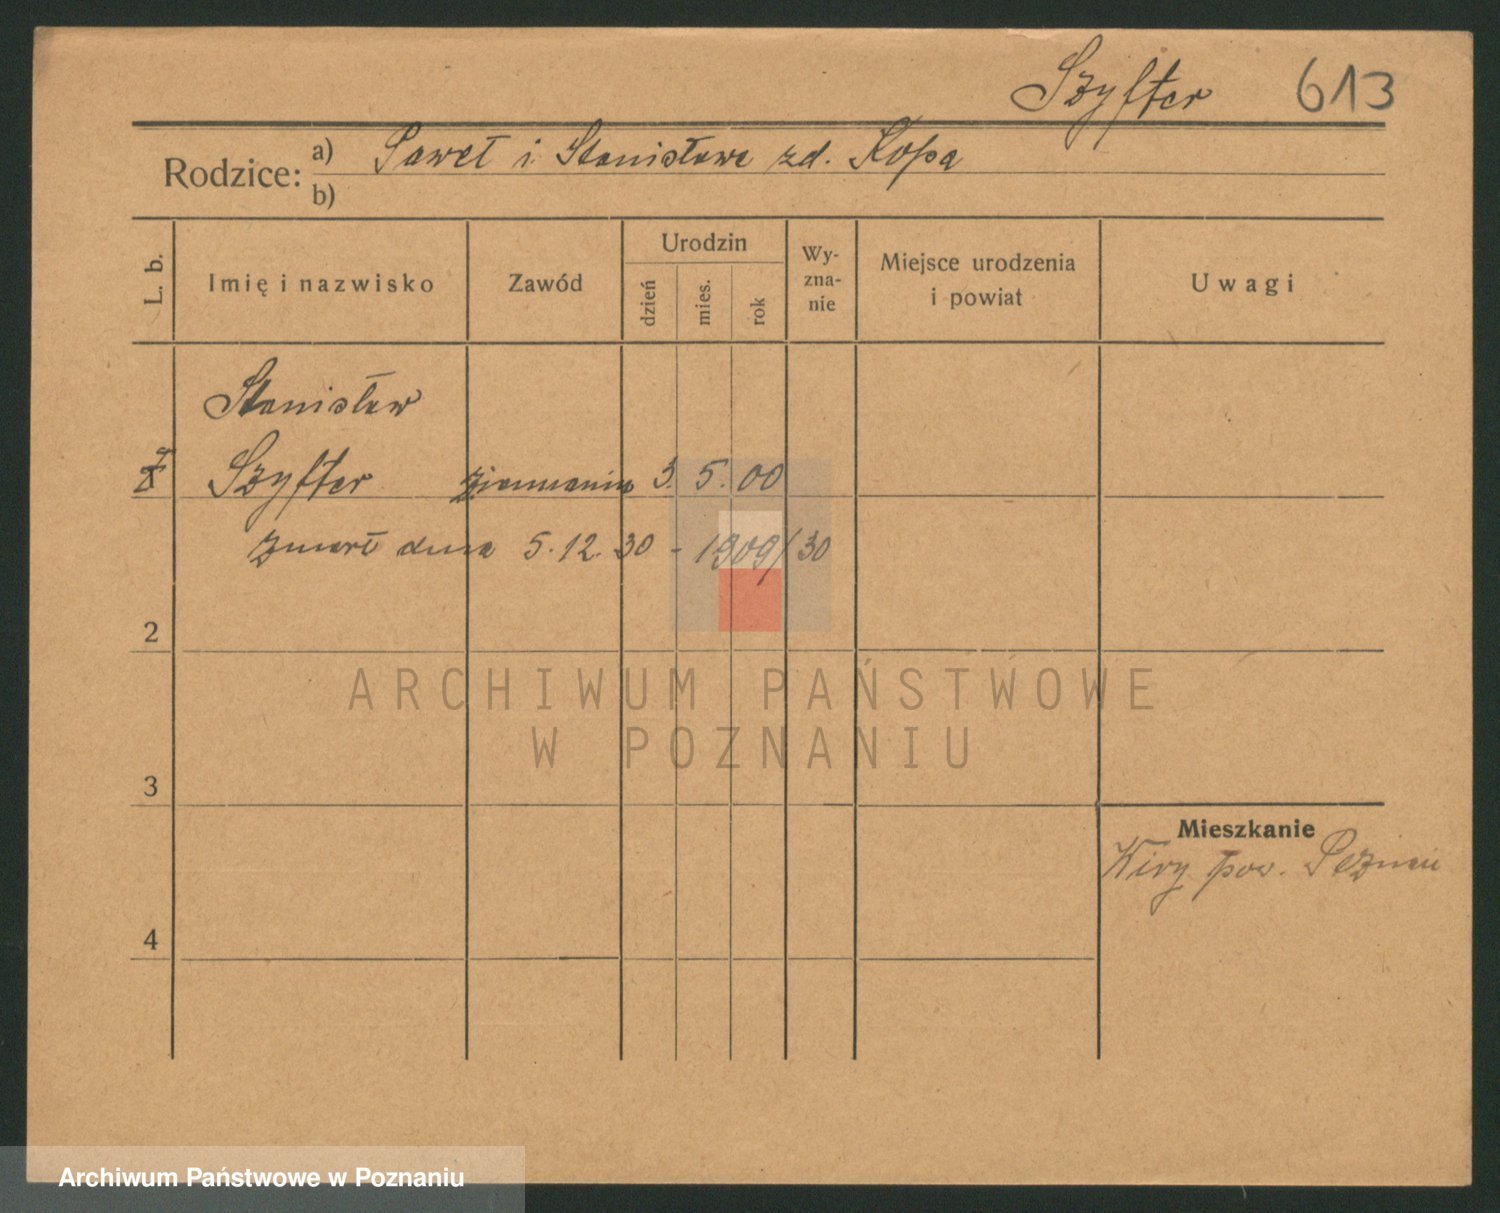 Szyfter 613
Rodzice: a) Paweł i Stanisława zd. Kopa
b)
L. b. Imię i nazwisko Zawód Urodzin dzień mies. rok Wyznanie Miejsce urodzenia i powiat Uwagi
Stanisław
Szyfter ziemianin 3. 5. 00
zmarł dnia 5.12.30 - 1909/30
2
ARCHIWUM PAŃSTWOWE
W POZNANIU
3
Mieszkanie
Kiry pow. Poznań
4
Archiwum Państwowe w Poznaniu